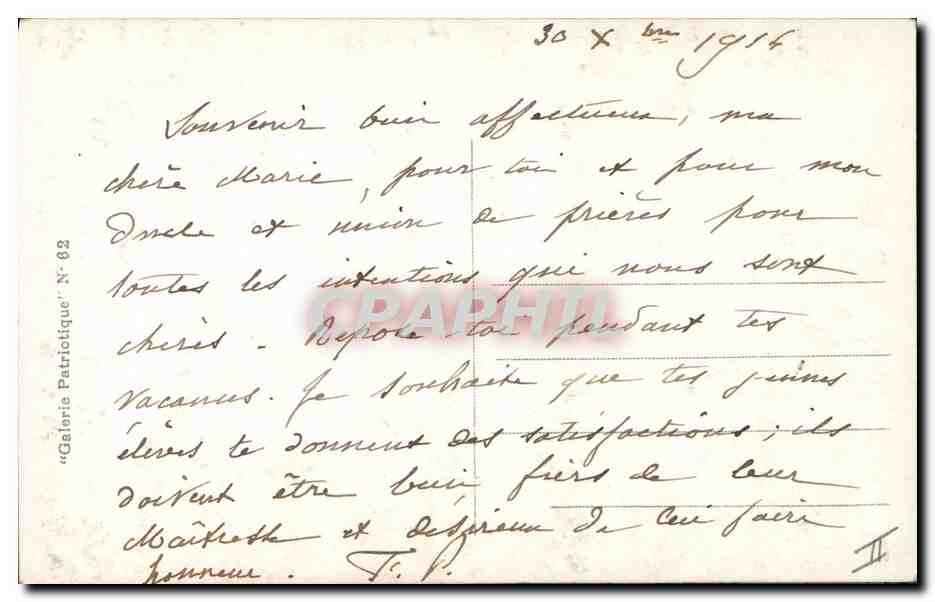 30 Xbre 1914
Souvenir bien affectueux, ma
chère Marie, pour toi et pour mon
oncle et union de prières pour
toutes les intentions que nous sont
chères. Repose-toi pendant tes
vacances. Je souhaite que tes jeunes
élèves te donnent des satisfactions ; ils
doivent être bien fiers de leur
Maîtresse et désireux de lui faire
honneur. F. P.
II
"Galerie Patriotique" N° 62
CPAPHIL